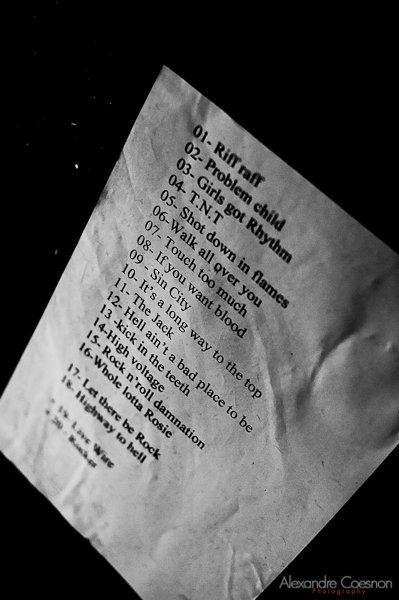 01- Riff raff
02- Problem child
03- Girls got Rhythm
04- T.N.T
05- Shot down in flames
06-Walk all over you
07- Touch too much
08- If you want blood
09 - Sin City
10- It's a long way to the top
11- The Jack
12- Hell ain't a bad place to be
13 -kick in the teeth
14-High voltage
15- Rock n'roll damnation
16-Whole lotta Rosie
17- Let there be Rock
18- Highway to hell
19- Live Wire
20- Rocker
Alexandre Coesnon
Photography